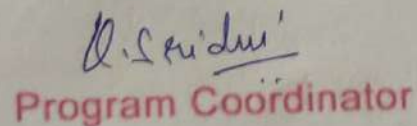 Q. Sridui
Program Coordinator